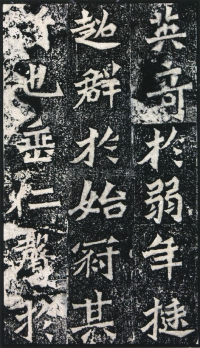 英奇於弱年挺
超群於始冠其
也垂仁聲於